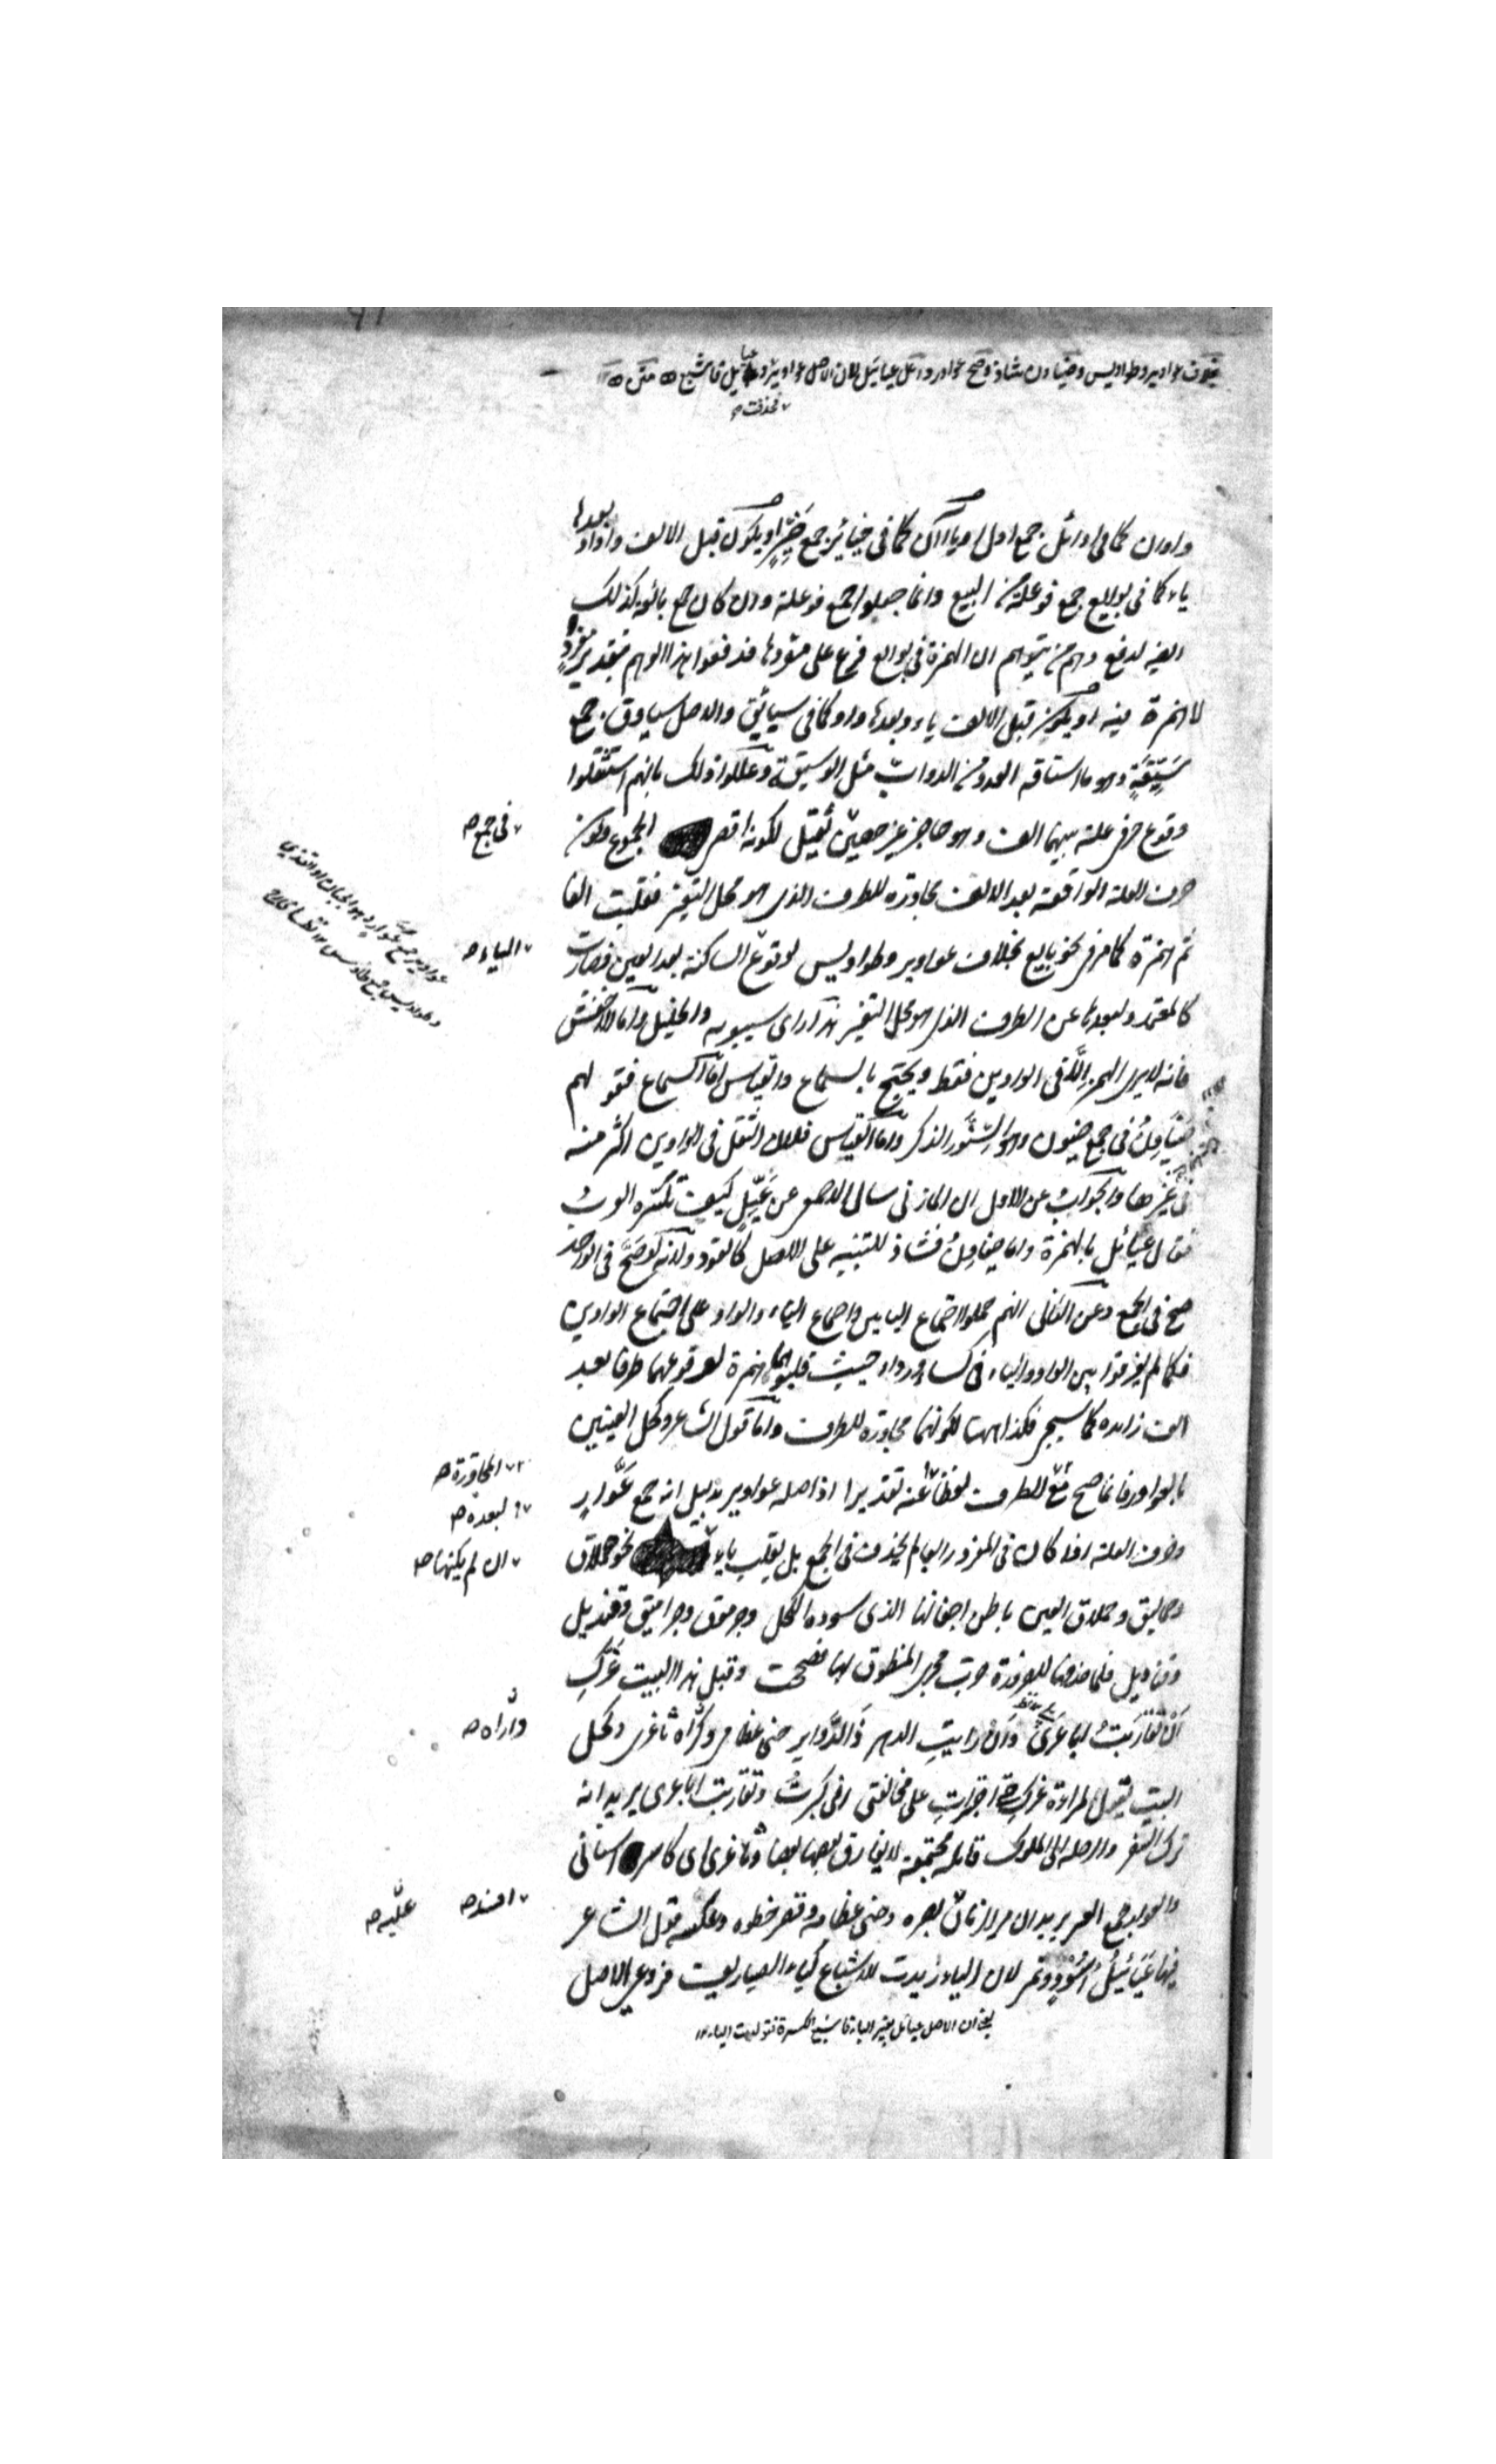 بخلاف عواوير وطواويس وضياون شاذ وصح عواور واعل عيائيل لان الاصل عواوير وعيائل فاشبع متن
فحذفت
واوان كما في اوائل جمع اول او ياءان كما في خيائر جمع خيّر او يكون قبل الالف واو وبعدها
ياء كما في بوايع جمع فوعلة من البيع وانما جعلوا جمع فوعلة وان كان جمع بائعة كذلك
ايضا لدفع وهم من يتوهم ان الهمزة في بوايع فرع على مفردها فدفعوا هذا الوهم بتقدير مفرد
لا همزة فيه او يكون قبل الالف ياء وبعدها واو كما في سيائق والاصل سياوق جمع
سَيِّقَةٍ وهو ما استاقه العدو من الدواب مثل الوسيقة وعللوا ذلك بانهم استثقلوا
وقوع حرفي علة بينهما الف وهو حاجز غير حصين ثقيل لكونه اقصى الجموع ولكون
في جمع صح
حرف العلة الواقعة بعد الالف مجاورة للطرف الذي هو محل التغير فقلبت الفا
ثم همزة كما مر في نحو بايع بخلاف عواوير وطواويس لوقوع الساكنة بعد العين فصارت
الياء صح
عواوير جمع عوار وهو الجبان او القذى
وطواويس جمع طاوس
كالمعتمد ولبعدها عن الطرف الذي هو محل التغير هذا راى سيبويه والخليل واما الاخفش
فانه لا يرى الهمز الا في الواوين فقط ويحتج بالسماع والقياس اما السماع فقولهم
ضياوِنُ في جمع ضيون وهو السنّور الذكر واما القياس فلان الثقل في الواوين اكثر منه
في غيرهما والجواب عن الاول ان المازني سال الاصمعي عن عيِّل كيف تكسره العرب
فقال عيائل بالهمزة واما ضياون فشاذ للتنبيه على الاصل كالقود ولانه لو صح في الواحد
صح في الجمع وعن الثاني انهم حملوا اجتماع اليائين واجتماع الياء والواو على اجتماع الواوين
فكما لم يفرقوا بين الواو والياء في كساء ورداء حيث قلبوهما همزة لوقوعهما طرفا بعد
الف زائدة كما سيجئ فكذا ههنا لكونهما مجاورة للطرف واما قول الشاعر وكحل العينين
بالعواور فانما صح مع للطرف لفظا عنه تقديرا اذ اصله عواوير بدليل انه جمع عُوّارٍ
المجاورة صح
لبعده صح
وحرف العلة اذا كان في المفرد رابعا لم يحذف في الجمع بل يقلب ياء نحو حملاق
ان لم يكنها صح
وحماليق وحملاق العين باطن اجفانها الذي يسوده الكحل وجرموق وجراميق وقنديل
وقناديل فلما حذفها للضرورة جرت مجرى المنطوق بها فصحت وقبل هذا البيت غرّكِ
اَن تقاربتْ اباعرى وان رايتِ الدهر ذا الدوائر حنى عظامى وراه ثاغرى وكحل
واراه صح
البيت يقول لمراءة غرك اجترات على مخالفتى انى كبرت وتقاربت اباعرى يريد انه
ترك السفر والرحلة الى الملوك فابله مجتمعة لا يفارق بعضها بعضا وثاغرى اى كاسر اسنانى
والعواور جمع العوار يريد ان مر الزمان بصره وحنى عظامه وقصر خطوه وعكسه قول الشاعر
افسد صح
عليه صح
فيها عيائيلُ اُسُودٍ ونمر لان الياء زيدت للاشباع كياء الصياريف فروعى الاصل
يعنى ان الاصل عيائل بغير الياء فاشبع الكسرة فتولدت الياء